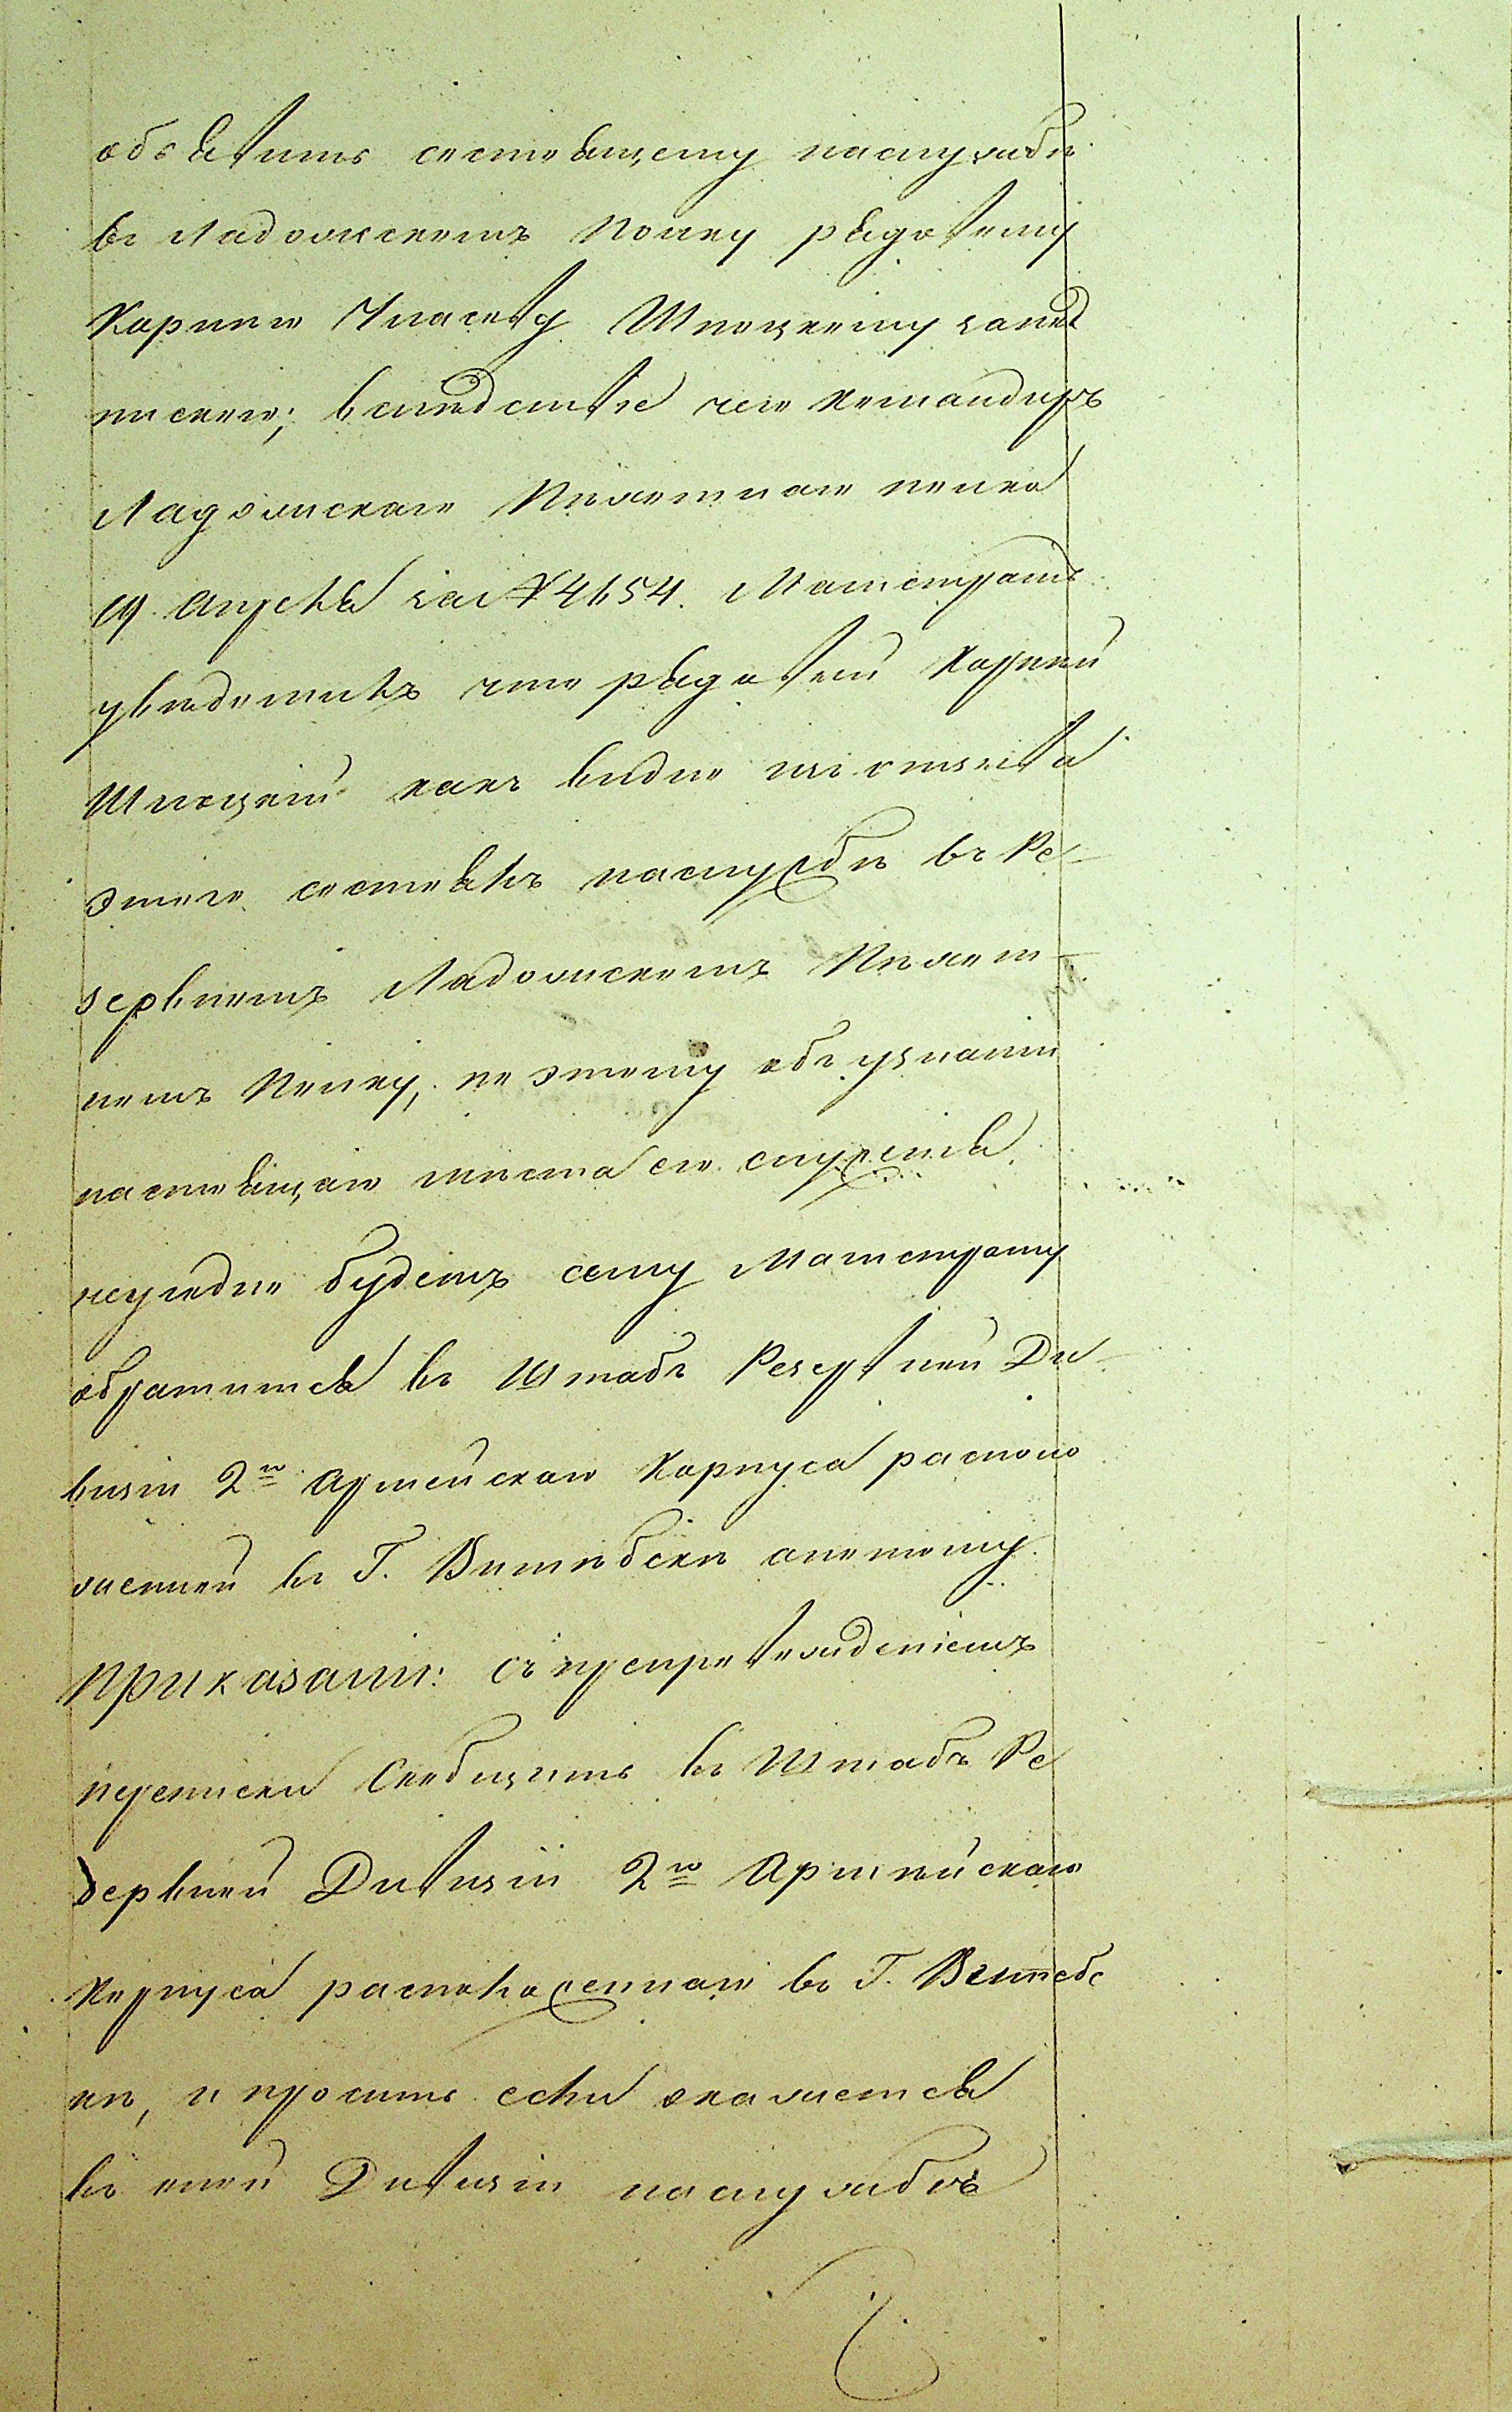 объявить состоящему наслужбѣ
въ Ладожскомъ Полку рядовому
Карпию Шпоцкому запѣт
ннскою; вслѣдствіе чего командиръ
Ладожскаго Пѣхотнаго полка
19 Апрѣля за № 4654. Магистратъ
увѣдомилъ что рядовой Карпій
Шпоцкій какъ видно изъ отзыва
этого состоялъ наслужбѣ въ Ре-
зервномъ Ладожскомъ Пѣхот-
номъ Полку, по этому объ узнаніи
настоящаго мѣста его служенія
неугодно будетъ сему Магистрату
обратится въ Штабъ Резервной Ди-
визіи 2го Армейскаго Корпуса располо
женной въ Г. Витебскѣ а потому
Приказали: съ препровожденіемъ
переписки Сообщить въ Штабъ Ре
зервной Дивизіи 2го Армѣйскаго
Корпуса расположеннаго въ Г. Витебс
кѣ, и просить если окажется
въ оной Дивизіи наслужбѣ